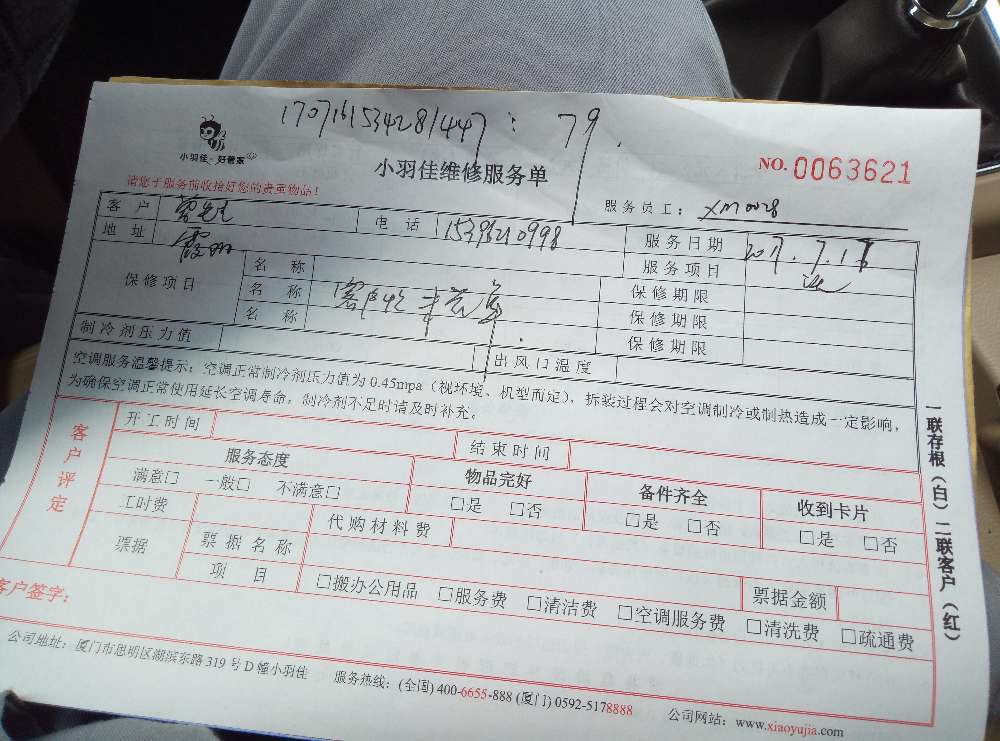 1707161534281447: 79.
小羽佳·好管家
小羽佳维修服务单
NO. 0063621
请您于服务前收拾好您的贵重物品!
服务员工: XM0028
客户 先生 电话 15396210998 服务日期 2017.7.16
地址 霞 服务项目
保修项目 名称 保修期限
名称 客户 保修期限
名称 保修期限
制冷剂压力值 出风口温度
空调服务温馨提示: 空调正常制冷剂压力值为 0.45mpa (视环境、机型而定), 拆装过程会对空调制冷或制热造成一定影响,
为确保空调正常使用延长空调寿命, 制冷剂不足时请及时补充。
客户评定
开工时间 结束时间
服务态度 物品完好 备件齐全 收到卡片
满意□ 一般□ 不满意□ □是 □否 □是 □否 □是 □否
工时费 代购材料费
票据 票据名称 票据金额
项目 □搬办公用品 □服务费 □清洁费 □空调服务费 □清洗费 □疏通费
客户签字:
公司地址: 厦门市思明区湖滨东路 319 号 D 幢小羽佳 服务热线: (全国) 400-6655-888 (厦门) 0592-5178888 公司网站: www.xiaoyujia.com
一联存根(白) 二联客户(红)